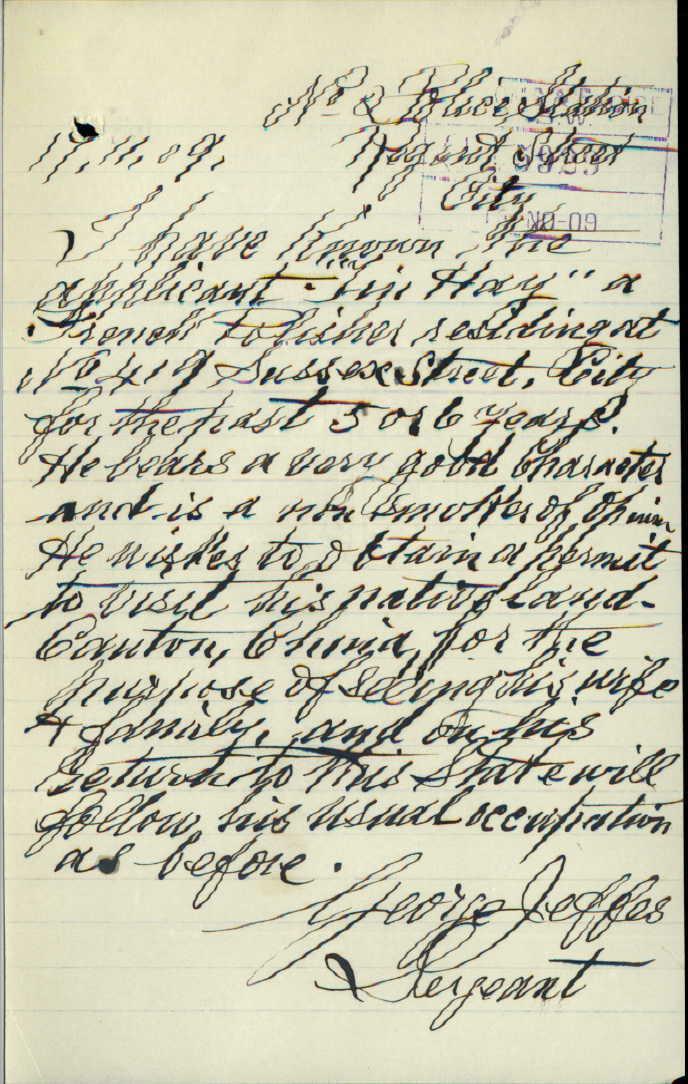 No 2 Police Station
17.11.09. Regent Street
City
NO-09
I have known the
applicant "Tin Hay" a
French Polisher residing at
No 419 Sussex Street, City
for the past 5 or 6 years.
He bears a very good Character
and is a non Smoker of Opium
He wishes to obtain a permit
to visit his native land-
Canton, China, for the
purpose of seeing his wife
& family, and on his
return to this State will
follow his usual occupation
as before.
George Jeffes
Sergeant